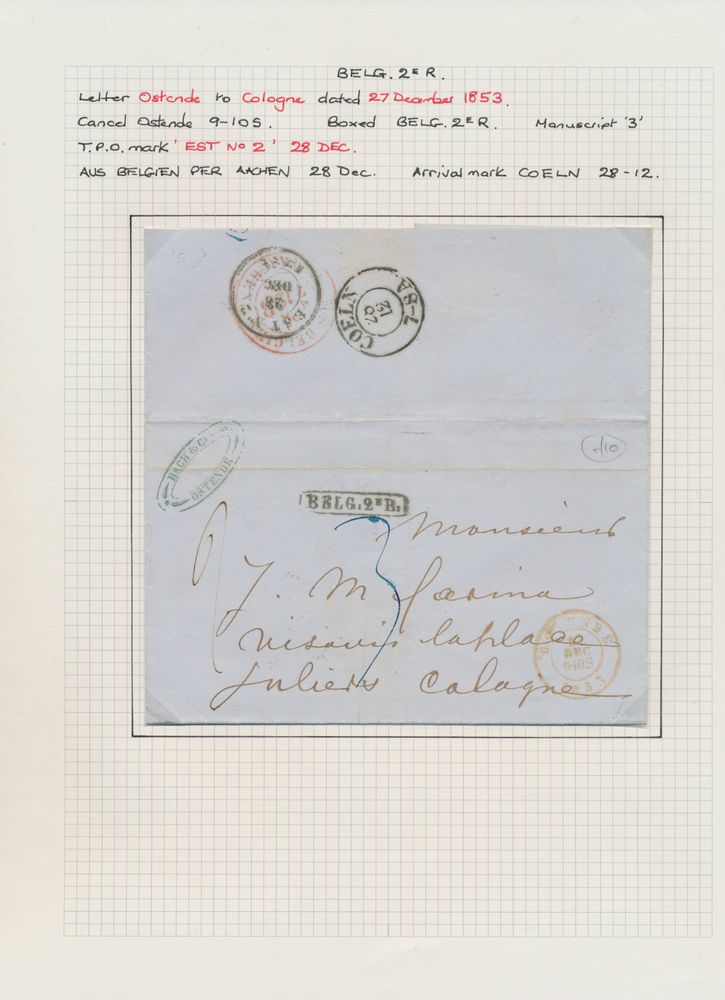 BELG. 2E R.
Letter Ostende to Cologne dated 27 December 1853.
Cancel Ostende 9-10S. Boxed BELG. 2E R. Manuscript '3'
T.P.O. mark 'EST No 2' 28 DEC.
AUS BELGIEN PER AACHEN 28 Dec. Arrival mark COELN 28-12.
EST No 2
28
DEC
COELN
12
7-8A
BACH & Co
OSTENDE
BELG. 2E R.
Monsieur
3
J. M. Farina
visavis laplace
Juliers Cologne
DEC